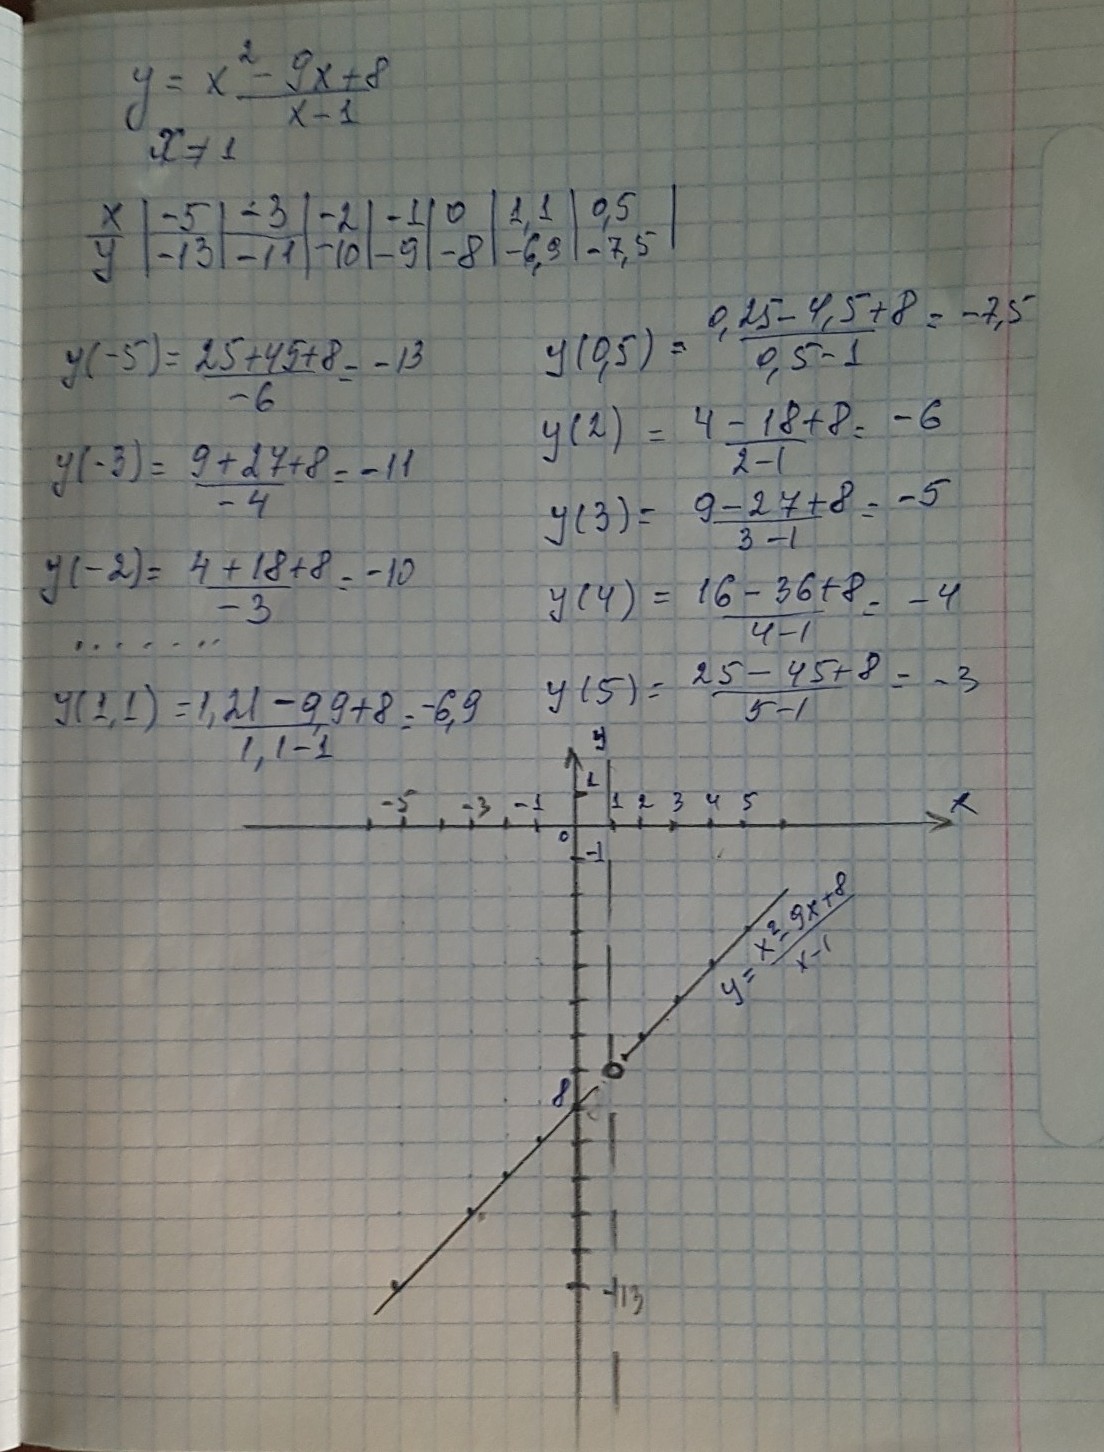 y = x² - 9x + 8 / x - 1
x ≠ 1
x | -5 | -3 | -2 | -1 | 0 | 1,1 | 0,5 |
y | -13 | -11 | -10 | -9 | -8 | -6,9 | -7,5
y(-5) = 25+45+8 / -6 = -13
y(-3) = 9+27+8 / -4 = -11
y(-2) = 4+18+8 / -3 = -10
.......
y(1,1) = 1,21-9,9+8 / 1,1-1 = -6,9
y(0,5) = 0,25-4,5+8 / 0,5-1 = -7,5
y(2) = 4-18+8 / 2-1 = -6
y(3) = 9-27+8 / 3-1 = -5
y(4) = 16-36+8 / 4-1 = -4
y(5) = 25-45+8 / 5-1 = -3
y
1
-5 -3 -1 1 2 3 4 5 x
0
-1
y = x²-9x+8 / x-1
8
-13